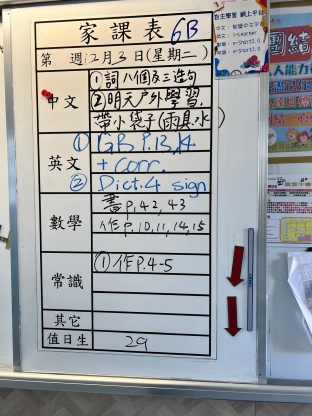 家課表 6B
第 週12月3日(星期二)
中文
①詞八個及三造句
②明天戶外學習,
帶小袋子(雨具、水)
英文
① GB P.13,14
+ corr.
② Dict.4 sign
數學
書P.42,43
作P.10,11,14,15
常識
①作P.4-5
其它
值日生
29
自主學習 網上平台